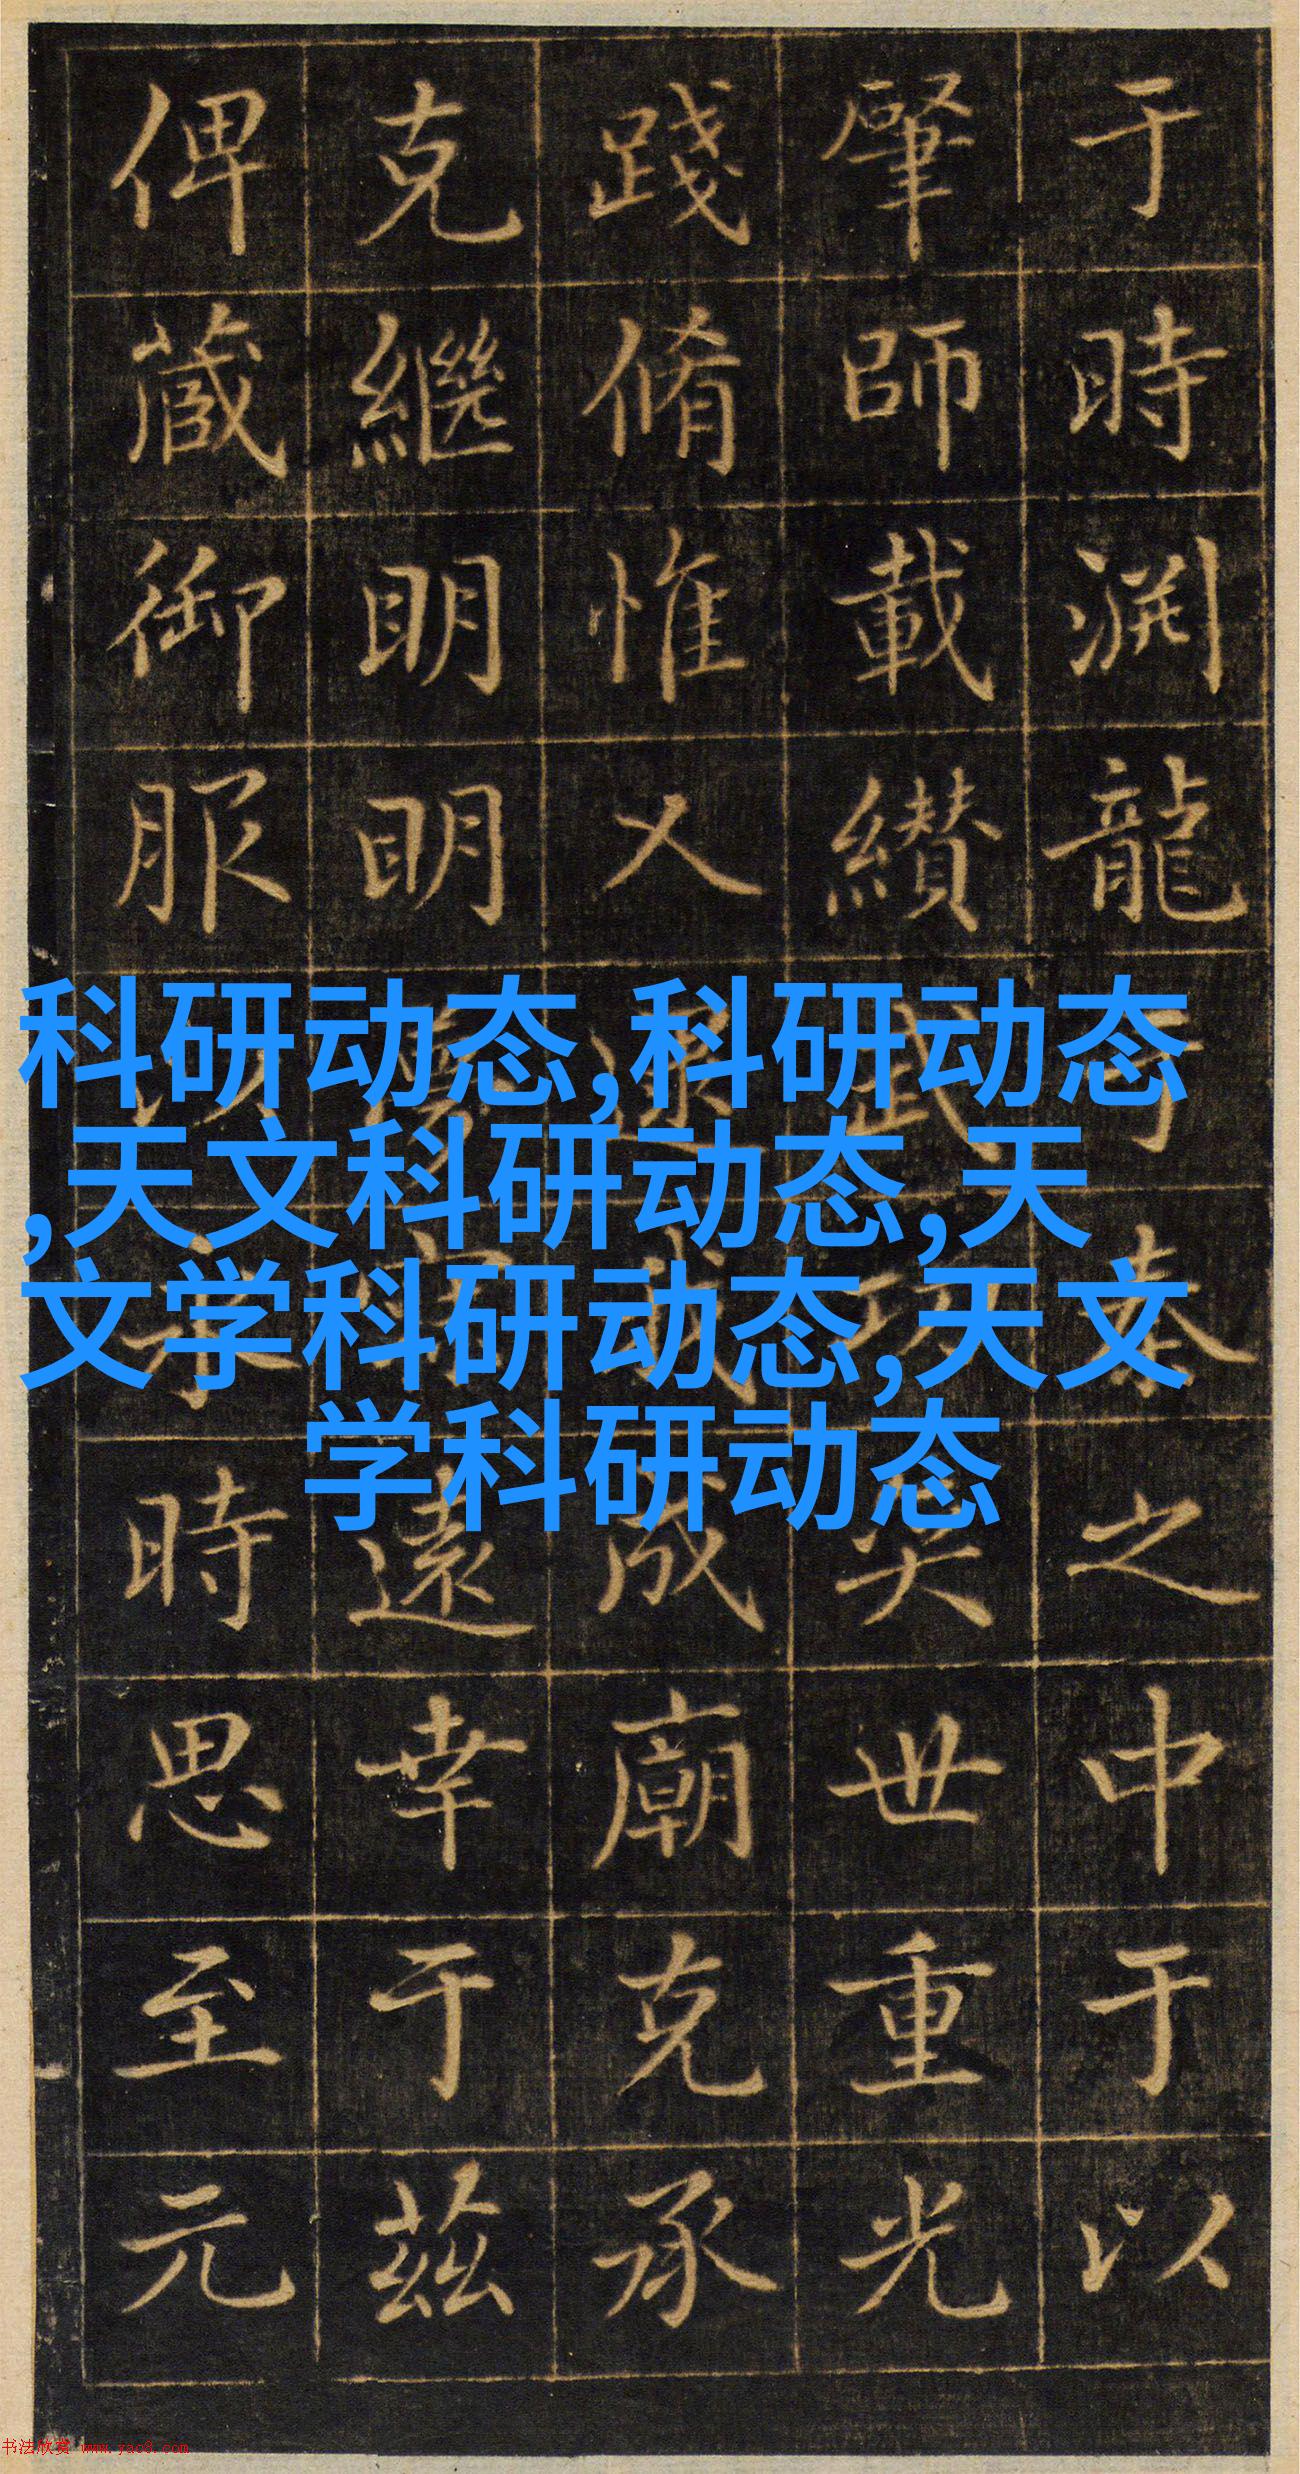 于時渊龍于泰之中于以
肇師載纘武功奕世重光
踐脩惟乂逮我成廟克承
克繼明明遠幸于茲
俾蕆御服以永時思至元
科研动态,科研动态
,天文科研动态,天
文学科研动态,天文
学科研动态
书法欣赏 www.yac8.com